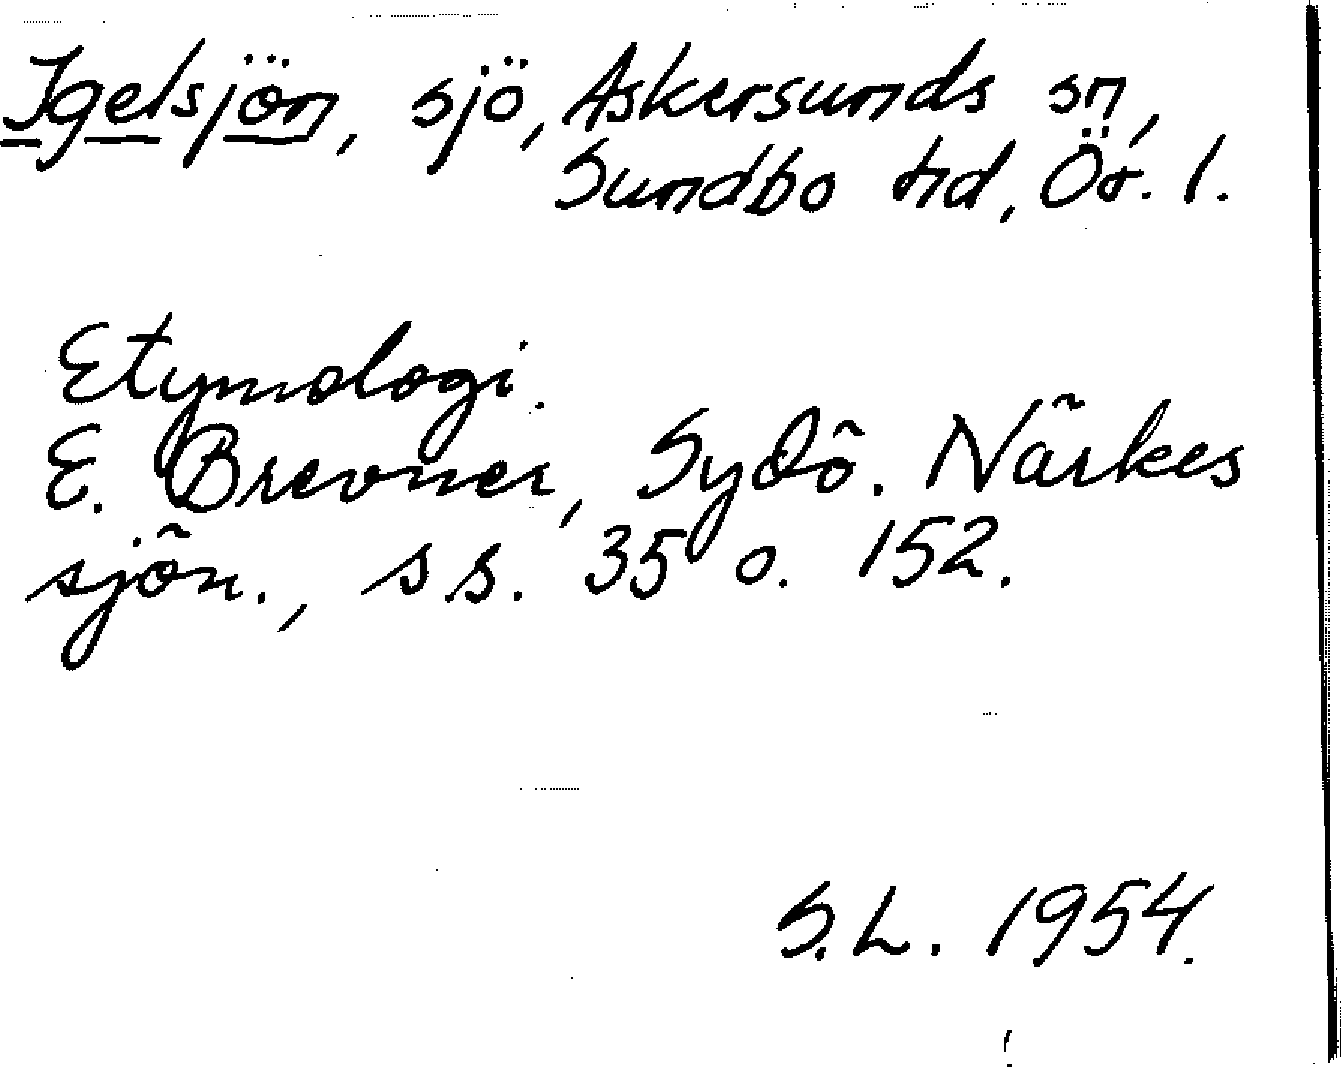 Igelsjön, sjö, Askersunds sn,
Sundbo hd, Ör. l.
Etymologi.
E. Brevner, Sydö. Närkes
sjön., s.s. 35 o. 152.
S.L. 1954.